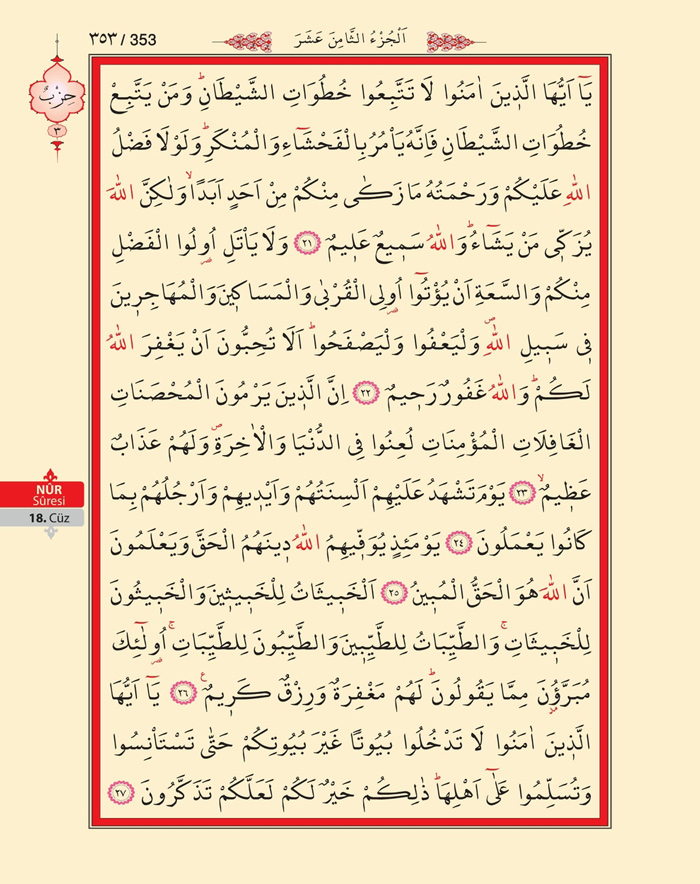 ٣٥٣ / 353
اَلْجُزْءُ الثَّامِنَ عَشَرَ
حِزْبٌ
٣
يَٓا اَيُّهَا الَّذ۪ينَ اٰمَنُوا لَا تَتَّبِعُوا خُطُوَاتِ الشَّيْطَانِۜ وَمَنْ يَتَّبِعْ
خُطُوَاتِ الشَّيْطَانِ فَاِنَّهُ يَأْمُرُ بِالْفَحْشَٓاءِ وَالْمُنْكَرِۜ وَلَوْلَا فَضْلُ
اللّٰهِ عَلَيْكُمْ وَرَحْمَتُهُ مَا زَكٰى مِنْكُمْ مِنْ اَحَدٍ اَبَدًاۙ وَلٰكِنَّ اللّٰهَ
يُزَكّ۪ي مَنْ يَشَٓاءُۜ وَاللّٰهُ سَم۪يعٌ عَل۪يمٌ ﴿٢١﴾ وَلَا يَأْتَلِ اُو۬لُوا الْفَضْلِ
مِنْكُمْ وَالسَّعَةِ اَنْ يُؤْتُٓوا اُو۬لِي الْقُرْبٰى وَالْمَسَاك۪ينَ وَالْمُهَاجِر۪ينَ
ف۪ي سَب۪يلِ اللّٰهِۖ وَلْيَعْفُوا وَلْيَصْفَحُواۜ اَلَا تُحِبُّونَ اَنْ يَغْفِرَ اللّٰهُ
لَكُمْۜ وَاللّٰهُ غَفُورٌ رَح۪يمٌ ﴿٢٢﴾ اِنَّ الَّذ۪ينَ يَرْمُونَ الْمُحْصَنَاتِ
الْغَافِلَاتِ الْمُؤْمِنَاتِ لُعِنُوا فِي الدُّنْيَا وَالْاٰخِرَةِۖ وَلَهُمْ عَذَابٌ
عَظ۪يمٌۙ ﴿٢٣﴾ يَوْمَ تَشْهَدُ عَلَيْهِمْ اَلْسِنَتُهُمْ وَاَيْد۪يهِمْ وَاَرْجُلُهُمْ بِمَا
كَانُوا يَعْمَلُونَ ﴿٢٤﴾ يَوْمَئِذٍ يُوَفّ۪يهِمُ اللّٰهُ د۪ينَهُمُ الْحَقَّ وَيَعْلَمُونَ
اَنَّ اللّٰهَ هُوَ الْحَقُّ الْمُب۪ينُ ﴿٢٥﴾ اَلْخَب۪يثَاتُ لِلْخَب۪يث۪ينَ وَالْخَب۪يثُونَ
لِلْخَب۪يثَاتِۚ وَالطَّيِّبَاتُ لِلطَّيِّب۪ينَ وَالطَّيِّبُونَ لِلطَّيِّبَاتِۚ اُو۬لٰٓئِكَ
مُبَرَّؤُ۫نَ مِمَّا يَقُولُونَۜ لَهُمْ مَغْفِرَةٌ وَرِزْقٌ كَر۪يمٌ۟ ﴿٢٦﴾ يَٓا اَيُّهَا
الَّذ۪ينَ اٰمَنُوا لَا تَدْخُلُوا بُيُوتًا غَيْرَ بُيُوتِكُمْ حَتّٰى تَسْتَأْنِسُوا
وَتُسَلِّمُوا عَلٰٓى اَهْلِهَاۜ ذٰلِكُمْ خَيْرٌ لَكُمْ لَعَلَّكُمْ تَذَكَّرُونَ ﴿٢٧﴾
NÛR
Sûresi
18. Cüz